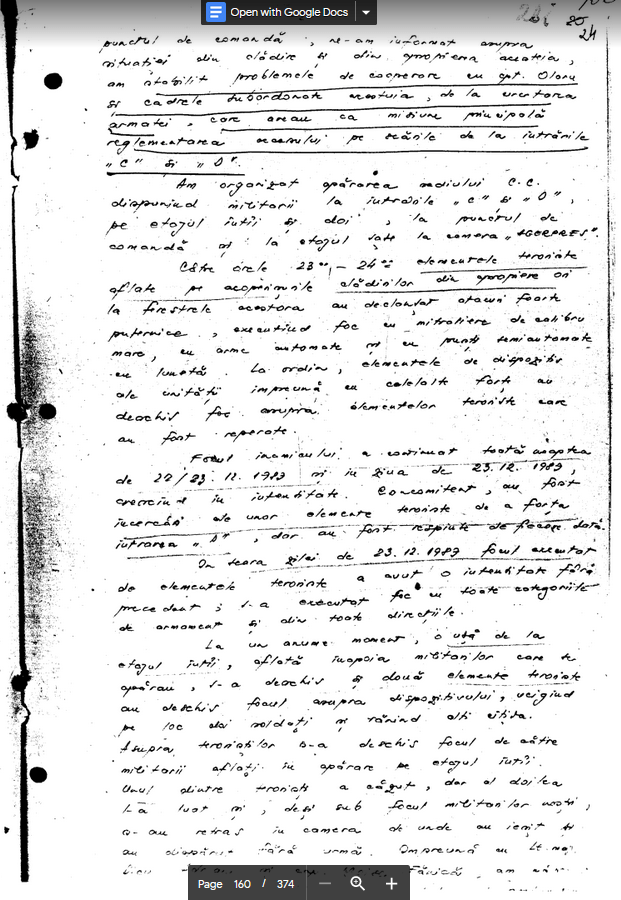 Open with Google Docs
24
punctul de comandă, ne-am informat asupra
situației din clădire și din apropierea acesteia,
am stabilit problemele de cooperare cu cpt. Oloru
și cadrele subordonate acestuia, de la securitatea
armatei, care aveau ca misiune principală
reglementarea accesului pe scările de la intrările
"C" și "D".
Am organizat apărarea sediului C.C.
dispunînd militarii la intrările "C" și "D",
pe etajul întîi și doi, la punctul de
comandă și la etajul șase la camera "AGERPRES".
Către orele 23⁰⁰ - 24⁰⁰ elementele teroriste
aflate pe acoperișurile clădirilor din apropiere ori
la ferestrele acestora au declanșat atacuri foarte
puternice, executînd foc cu mitraliere de calibru
mare, cu arme automate și cu puști semiautomate
cu lunetă. La ordin, elementele de dispozitiv
ale unității împreună cu celelalte forțe au
deschis foc asupra elementelor teroriste care
au fost reperate.
Focul inamicului a continuat toată noaptea
de 22/23.12.1989 și în ziua de 23.12.1989,
crescînd în intensitate. Concomitent, au fost
încercări ale unor elemente teroriste de a forța
intrarea "D", dar au fost respinse de fiecare dată.
În seara zilei de 23.12.1989 focul executat
de elementele teroriste a avut o intensitate fără
precedent; s-a executat foc cu toate categoriile
de armament și din toate direcțiile.
La un anume moment, o ușă de la
etajul întîi, aflată înapoia militarilor care se
apărau, s-a deschis și două elemente teroriste
au deschis focul asupra dispozitivului, ucigînd
pe loc doi soldați și rănind alți cîțiva.
Asupra teroriștilor s-a deschis focul de către
militarii aflați în apărare pe etajul întîi.
Unul dintre teroriști a căzut, dar al doilea
l-a luat și, deși sub focul militarilor noștri,
s-au retras în camera de unde au ieșit și
au dispărut fără urmă. Împreună cu lt. maj.
Page 160 / 374